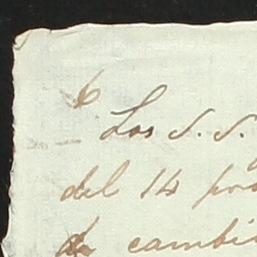 Los S. S.
del 14 pro
de cambi